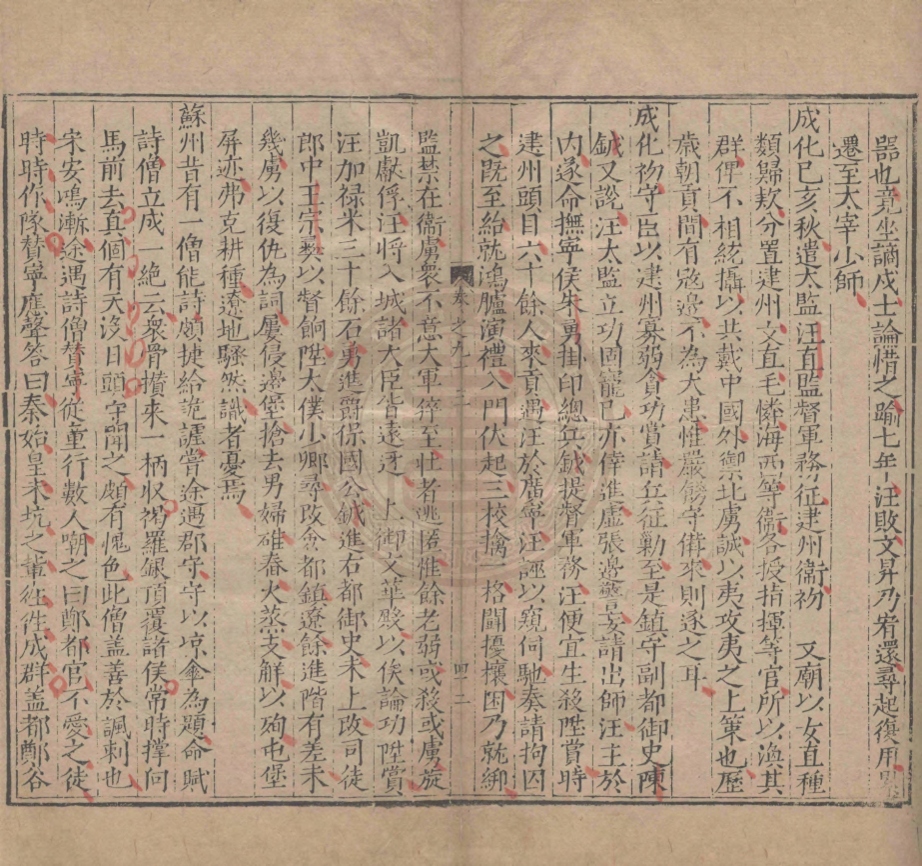 器也竟坐謫戍士論惜之踰七年汪敗文昇乃宥還尋起復用
遷至太宰少師
成化己亥秋遣太監汪直監督軍務征建州衞初 文廟以女直種
類歸款分置建州女直毛憐海西等衞各授指揮等官所以渙其
群俾不相統攝以共戴中國外禦北虜誠以夷攻夷之上策也歷
歲朝貢間有寇邊不為大患惟嚴餝守備來則逐之耳
成化初守臣以建州寡弱貪功賞請兵征勦至是鎮守副都御史陳
鉞又說汪太監立功固寵已亦倖進虛張邊警妄請出師汪主於
内遂命撫寧侯朱勇掛印總兵鉞提督軍務汪便宜生殺陞賞時
建州頭目六十餘人來貢遇汪於廣寧汪誣以窺伺馳奏請拘囚
之既至紿就鴻臚演禮入門伏起三校擒一格鬪擾攘困乃就綁
卷之九十二 四二
監禁在衞虜衆不意大軍猝至壯者逃匿惟餘老弱或殺或虜旋
凱獻俘汪將入城諸大臣皆遠迓 上御文華殿以俟論功陞賞
汪加禄米三十餘石勇進爵保國公鉞進右都御史未上改司徒
郎中王宗彛以督餉陞太僕少卿尋改僉都鎮遼餘進階有差未
幾虜以復仇為詞屢侵邊堡搶去男婦碓舂火蒸支解以殉屯堡
屏迹弗克耕種遼地騷然識者憂焉
蘇州昔有一僧能詩頗捷給詭誕嘗途遇郡守守以凉傘為題命賦
詩僧立成一絶云衆骨攢来一柄収褐羅銀頂覆諸侯常時撑向
馬前去真個有天没日頭守聞之頗有愧色此僧盖善於諷刺也
宋安鳴漸途遇詩僧賛寧從童行數人嘲之曰鄭都官不愛之徒
時時作隊賛寧應聲答曰秦始皇未坑之軰徃徃成群盖都鄭谷